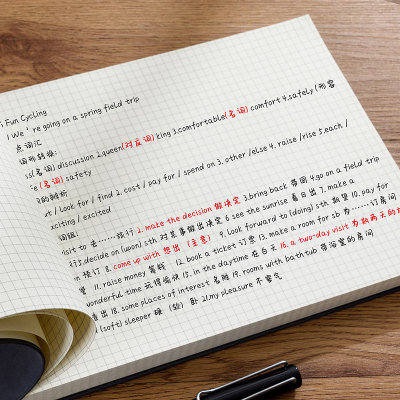 Fun Cycling
We're going on a spring field trip
点词汇
词形转换:
(名词) discussion 2.queen(对反词) king 3.comfortable(名词) comfort 4.safely (形容
(名词) safety
的辨析
/ look for / find 2. cost / pay for / spend on 3. other /else 4. raise /rise 5.each /
/ excited
词组.
visit to 去……旅行 2. make the decision 做决定 3.bring back 带回 4.go on a field trip
5.decide on(upon) sth 对某事做出决定 6 see the sunrise 看日出 7. make a
预订 8. come up with 想出 (主意) 9. look forward to (doing) sth 期望 10. pay for
11. raise money 筹钱 12. book a ticket 订票 13. make a room for sb 为……订房间
wonderful time 玩得愉快 15. in the daytime 在白天 16. a two-day visit 为期两天的
看出 18. some places of interest 名胜 19. rooms with bathtub 带浴室的房间
(soft) sleeper 硬 (软) 卧 21my pleasure 不客气